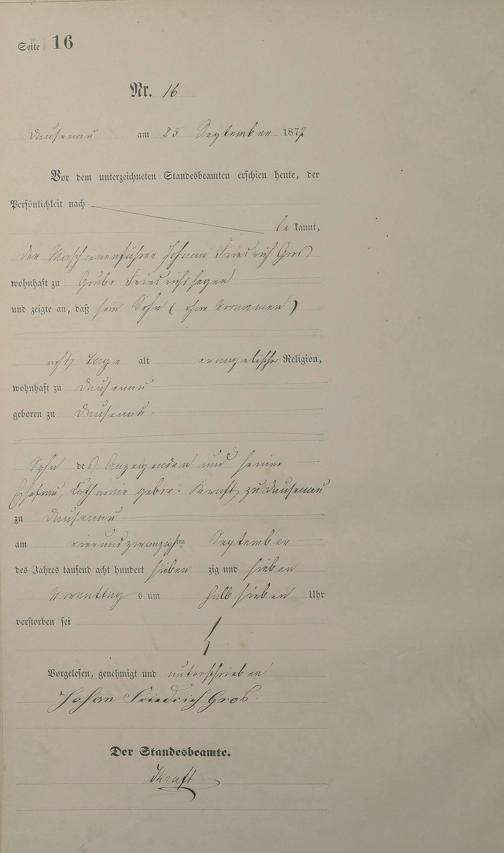 Seite 16
Nr. 16
Dausenau am 25 September 1877
Vor dem unterzeichneten Standesbeamten erschien heute, der
Persönlichkeit nach
be kannt,
der Maschinenführer Johann Friedrich Gros
wohnhaft zu Grube Friedrichssegen
und zeigte an, daß sein Sohn (ohne Vornamen)
acht Tage alt evangelischer Religion,
wohnhaft zu Dausenau
geboren zu Dausenau
Sohn des Anzeigenden und seiner
Ehefrau, Katharine gebor. Kraft, zu Dausenau
zu Dausenau
am vierundzwanzigsten September
des Jahres tausend acht hundert sieben zig und sieben
Vormittags um halb sieben Uhr
verstorben sei
Vorgelesen, genehmigt und unterschrieben
Johan Friedrich Gros
Der Standesbeamte.
Kraft